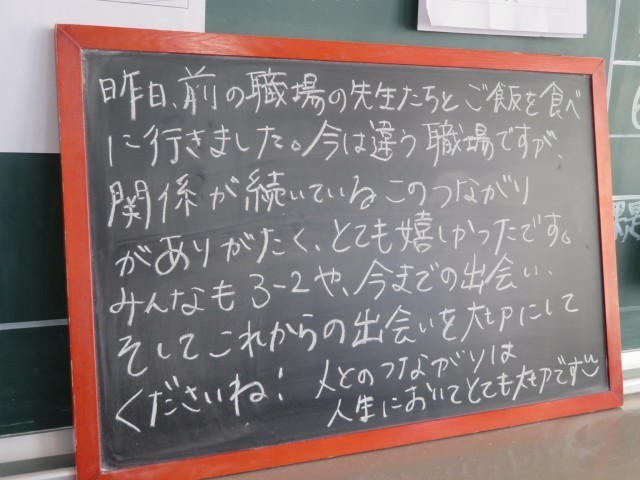 昨日、前の職場の先生たちとご飯を食べ
に行きました。今は違う職場ですが、
関係が続いているこのつながり
がありがたく、とても嬉しかったです。
みんなも3-2や、今までの出会い、
そしてこれからの出会いを大切にして
くださいね! 人とのつながりは
人生においてとても大切です